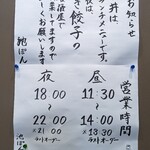 お知らせ
丼は、
ランチメニューです。
夜は、
き餃子の
酒屋で
しくお願いします
池ぽん
営業時間
昼
11:30
〜
14:00
×13:30
ラストオーダー
夜
18:00
〜
22:00
×21:00
ラストオーダー